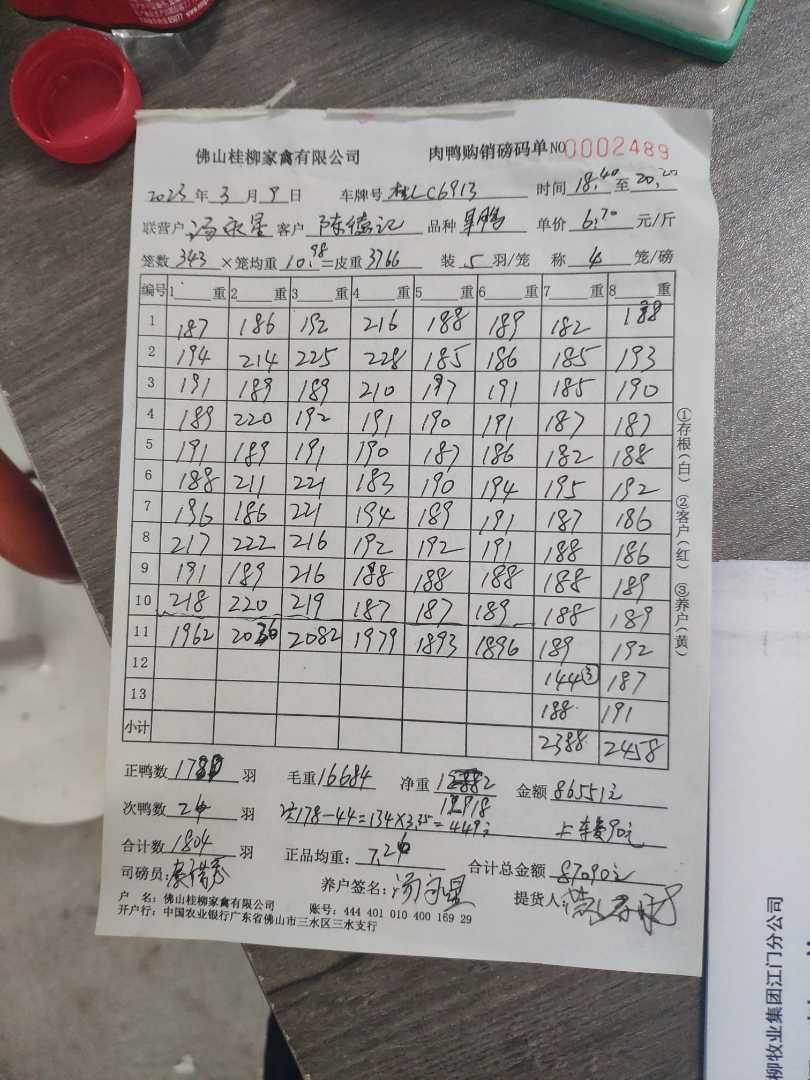 佛山桂柳家禽有限公司 肉鸭购销磅码单 NO 0002489
2023 年 3 月 9 日 车牌号 桂LC6913 时间 18:40 至 20:20
联营户 汤永星 客户 陈德记 品种 单价 6.70 元/斤
笼数 343 ×笼均重 10.98 =皮重 3766 装 5 羽/笼 称 4 笼/磅
编号 1 重 2 重 3 重 4 重 5 重 6 重 7 重 8 重
1 187 186 192 216 188 189 182 188
2 194 214 225 228 185 186 185 193
3 191 189 189 210 197 191 185 190
4 189 220 192 191 190 191 187 187
5 191 189 191 190 187 186 182 188
6 188 211 221 183 190 194 195 192
7 196 186 221 194 189 191 187 186
8 217 222 216 192 192 191 188 186
9 191 189 216 188 188 188 188 189
10 218 220 219 187 187 189 188 189
11 1962 2036 2082 1979 1893 1896 189 192
12 144③ 187
13 188 191
小计 2388 2458
①存根(白) ②客户(红) ③养户(黄)
正鸭数 羽 毛重 16684 净重 金额 86551元
12918
次鸭数 24 羽 次178-44=134×3.35=449元 上车费90元
合计数 1804 羽 正品均重: 7.24 合计总金额 87090元
司磅员: 养户签名: 汤永星 提货人:
户 名: 佛山桂柳家禽有限公司 账号: 444 401 010 400 169 29
开户行: 中国农业银行广东省佛山市三水区三水支行
柳牧业集团江门分公司